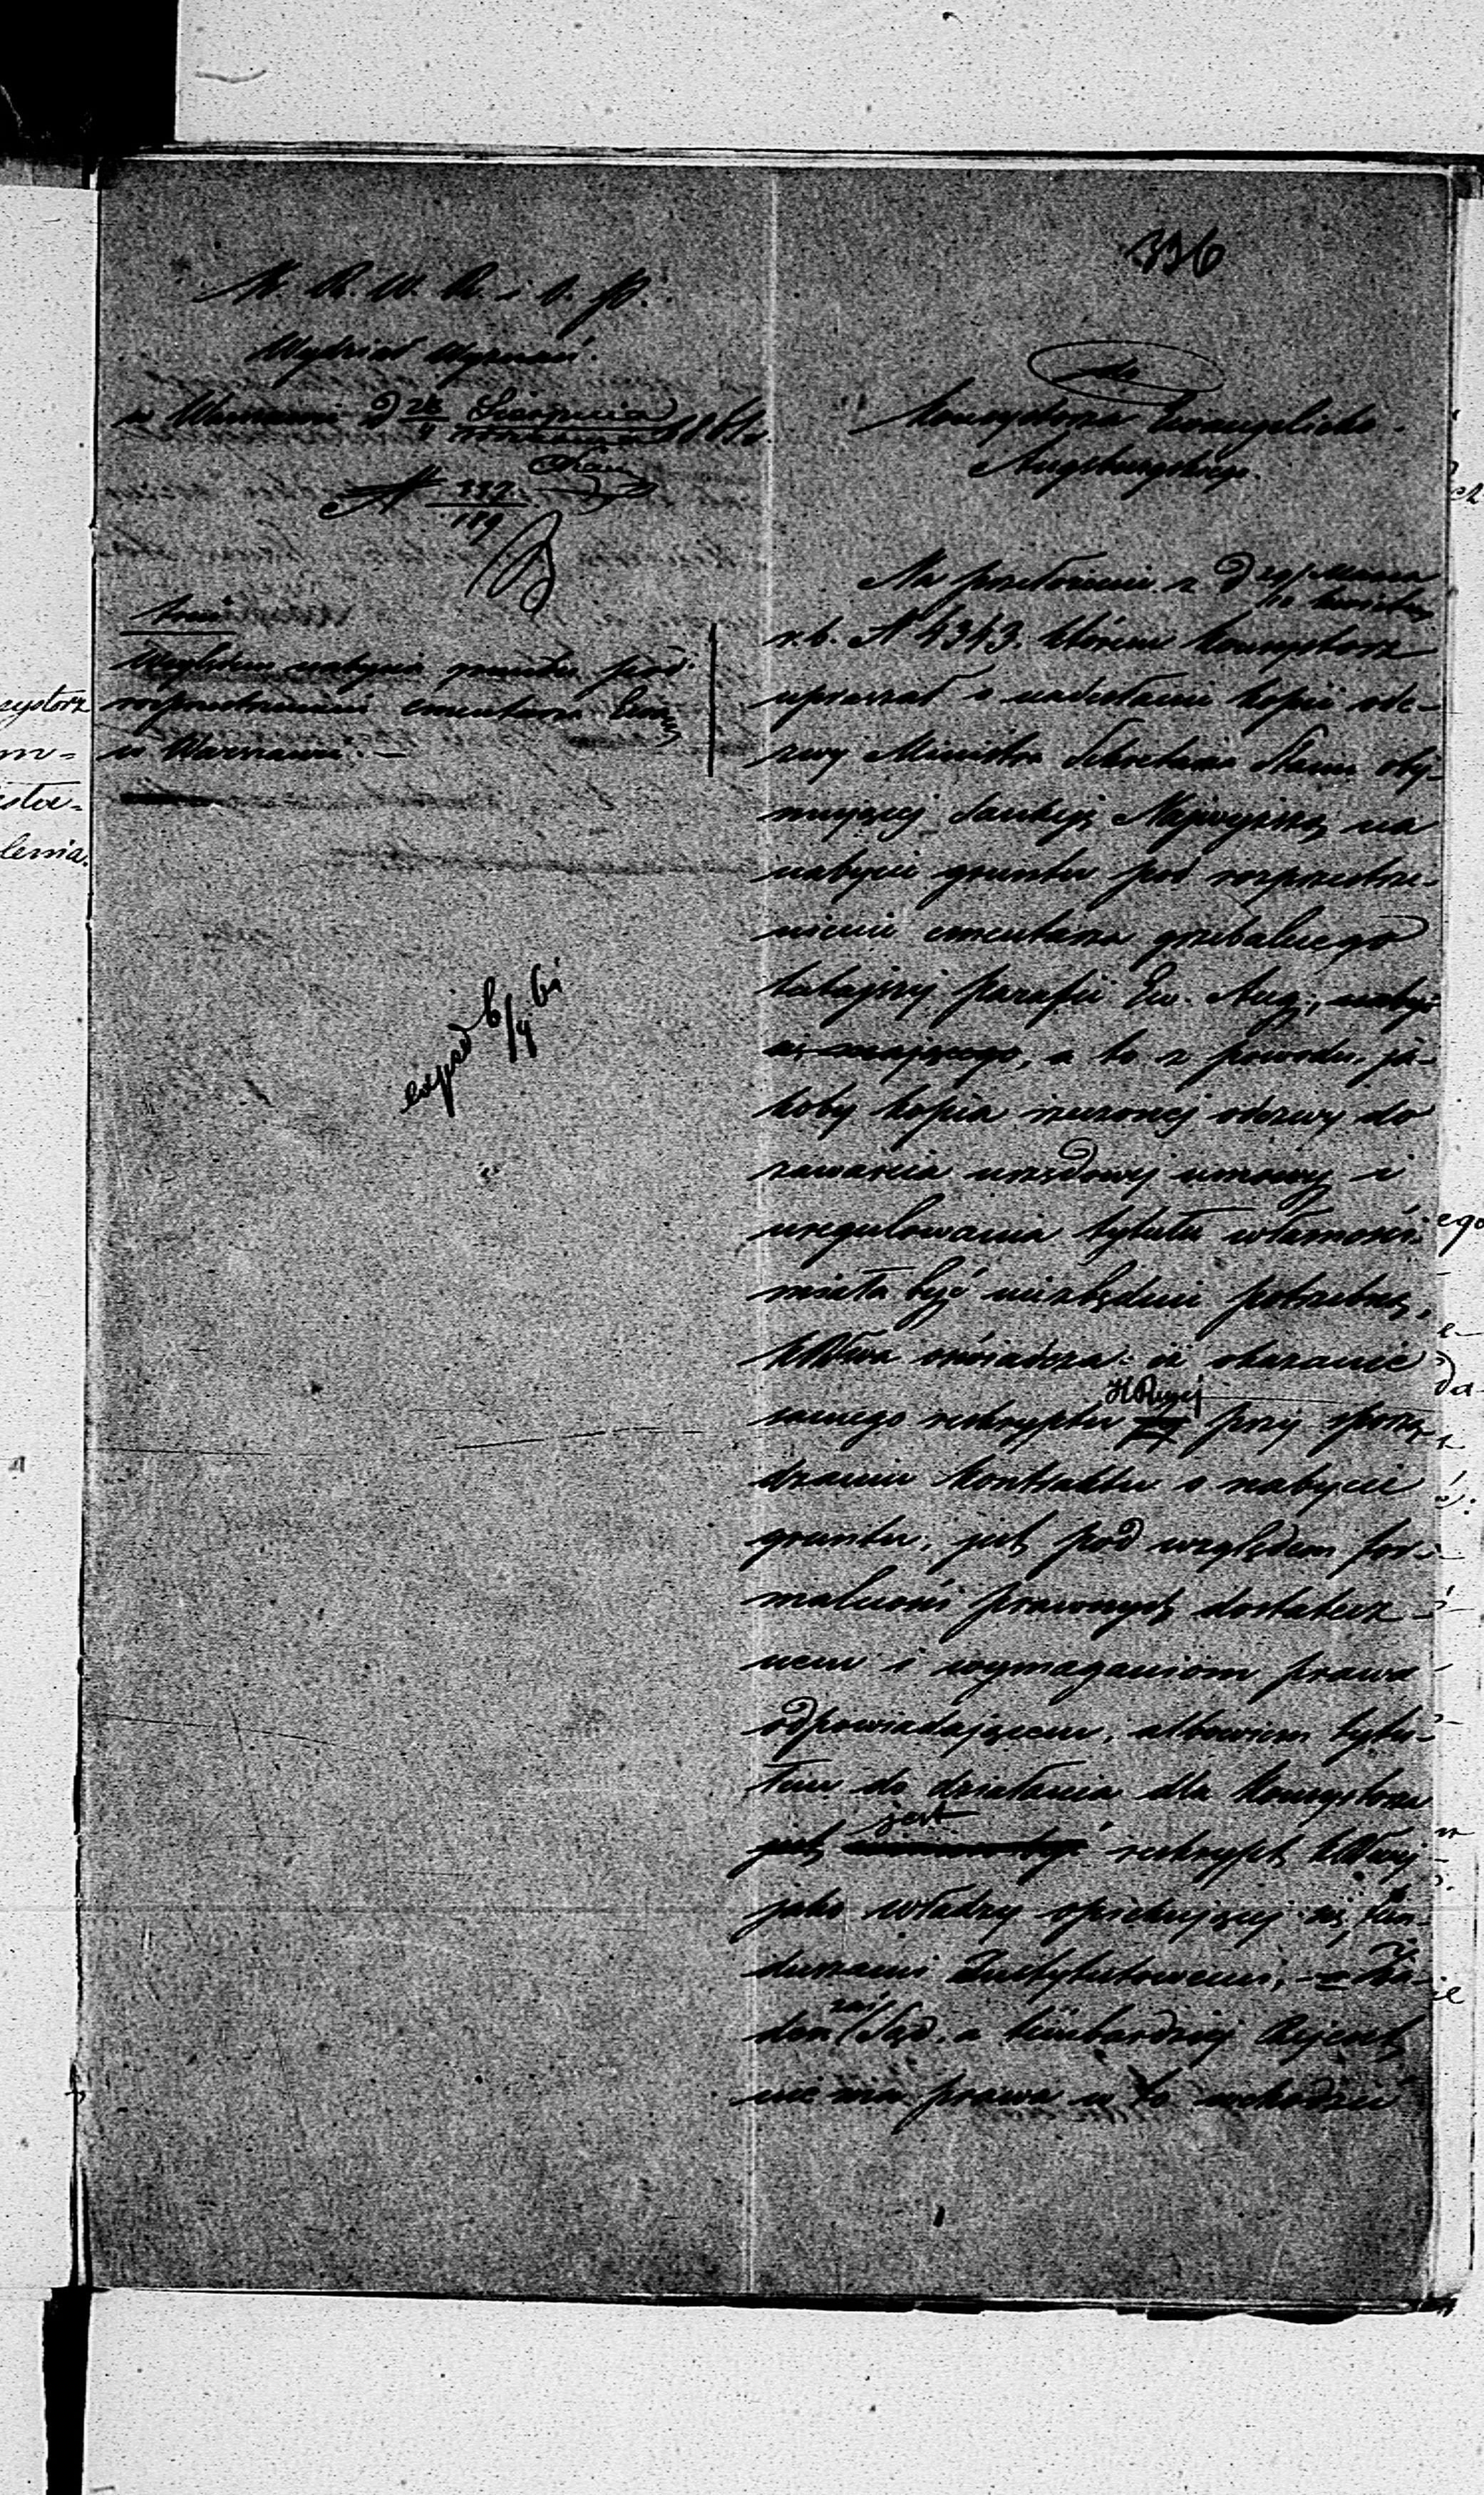 336
K. R. W. R. i O. P.
Wydział Wyznań.
w Warszawie d 22 Sierpnia
4 Września 1861 r.
N 197
189
treść
Względem nabycia gruntu pod
rozprzestrzenienie cmentarza Ewang
w Warszawie. —
exped 6/9 61
do
Konsystorza Ewangelicko-
Augsburgskiego.
Na przełożenie z d 29 Marca
10 Kwietnia
r. b. N 4343. którem Konsystorz
upraszał o nadesłanie kopii ode-
zwy Ministra Sekretarza Stanu obej-
mującej Sankcją Najwyższą na
nabycie gruntu pod rozprzestrze-
nienie cmentarza grzebalnego
tutejszej parafii Ew. Aug.,
a to z powodu, ja-
koby kopia rzeczonej odezwy do
zawarcia urzędowej umowy i
uregulowania tytułu własności
miała być niezbędnie potrzebną,
oświadcza: iż okazanie
samego reskryptu przy sporzą-
dzaniu kontraktu o nabycie
gruntu, jest pod względem for-
malności prawnych dostatecz-
nem i wymaganiom prawa
odpowiadającem, albowiem tytu-
łem do działania dla Konsystorza
jest reskrypt
jako władzy opiekującej się fun-
duszami Instytutowemi, Ża-
den zaś Sąd, a tembardziej Rejent
nie ma prawa w to wchodzić